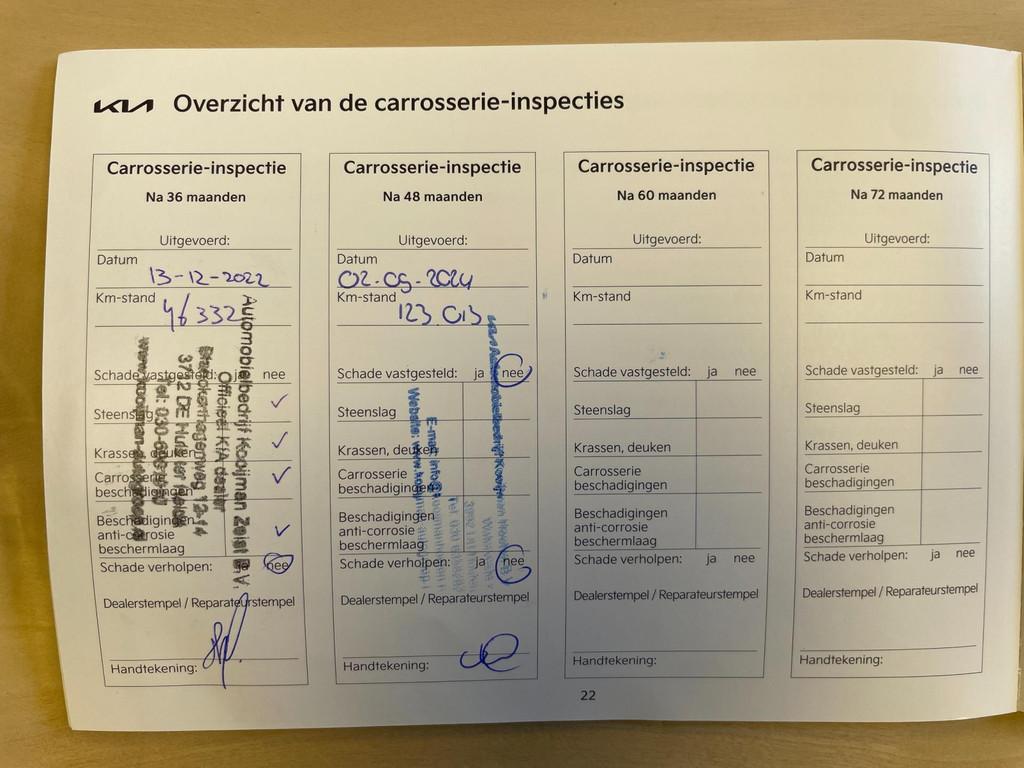 KIA Overzicht van de carrosserie-inspecties
Carrosserie-inspectie
Na 36 maanden
Uitgevoerd:
Datum
13-12-2022
Km-stand
46332
Schade vastgesteld: ja nee
Steenslag
Krassen, deuken
Carrosserie
beschadigingen
Beschadigingen
anti-corrosie
beschermlaag
Schade verholpen: ja nee
Dealerstempel / Reparateurstempel
Handtekening:
Automobielbedrijf Kooijman Zeist B.V.
Officieel KIA dealer
12-14
3712 DE Huis ter Heide
Tel: 030-
Carrosserie-inspectie
Na 48 maanden
Uitgevoerd:
Datum
02-09-2024
Km-stand
123 013
Schade vastgesteld: ja nee
Steenslag
Krassen, deuken
Carrosserie
beschadigingen
Beschadigingen
anti-corrosie
beschermlaag
Schade verholpen: ja nee
Dealerstempel / Reparateurstempel
Handtekening:
KIA Automobielbedrijf Kooijman
Tel. 030
E-mail: info@
Website: www.kooijman
Carrosserie-inspectie
Na 60 maanden
Uitgevoerd:
Datum
Km-stand
Schade vastgesteld: ja nee
Steenslag
Krassen, deuken
Carrosserie
beschadigingen
Beschadigingen
anti-corrosie
beschermlaag
Schade verholpen: ja nee
Dealerstempel / Reparateurstempel
Handtekening:
Carrosserie-inspectie
Na 72 maanden
Uitgevoerd:
Datum
Km-stand
Schade vastgesteld: ja nee
Steenslag
Krassen, deuken
Carrosserie
beschadigingen
Beschadigingen
anti-corrosie
beschermlaag
Schade verholpen: ja nee
Dealerstempel / Reparateurstempel
Handtekening:
22